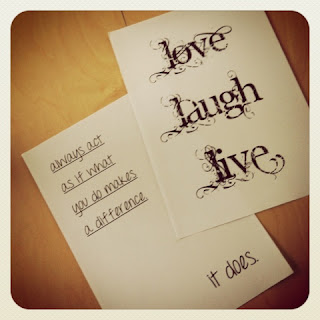 love
laugh
live
always act
as if what
you do makes
a difference
it does.